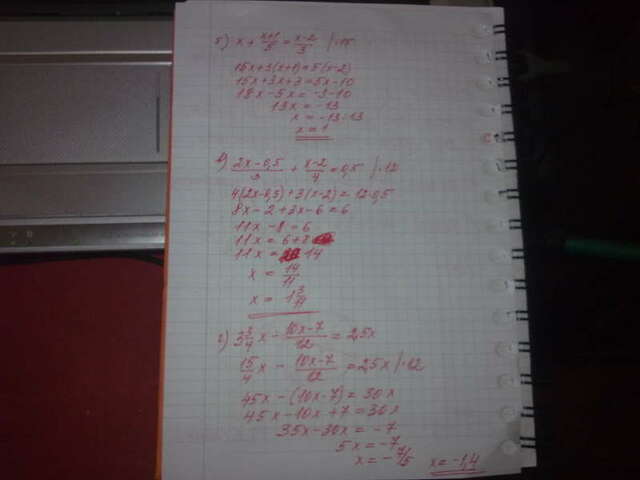 б) x + x+1/5 = x-2/3 |·15
15x+3(x+1)=5(x-2)
15x+3x+3=5x-10
18x-5x=-3-10
13x=-13
x=-13:13
x=1
в) 2x-0,5/3 + x-2/4 = 0,5 |·12
4(2x-0,5)+3(x-2)=12·0,5
8x-2+3x-6=6
11x-8=6
11x=6+8
11x=14
x=14/11
x=1 3/11
г) 3 3/4 x - 10x-7/12 = 2,5x
15/4 x - 10x-7/12 = 2,5x |·12
45x-(10x-7)=30x
45x-10x+7=30x
35x-30x=-7
5x=-7
x=-7/5 x=-1,4